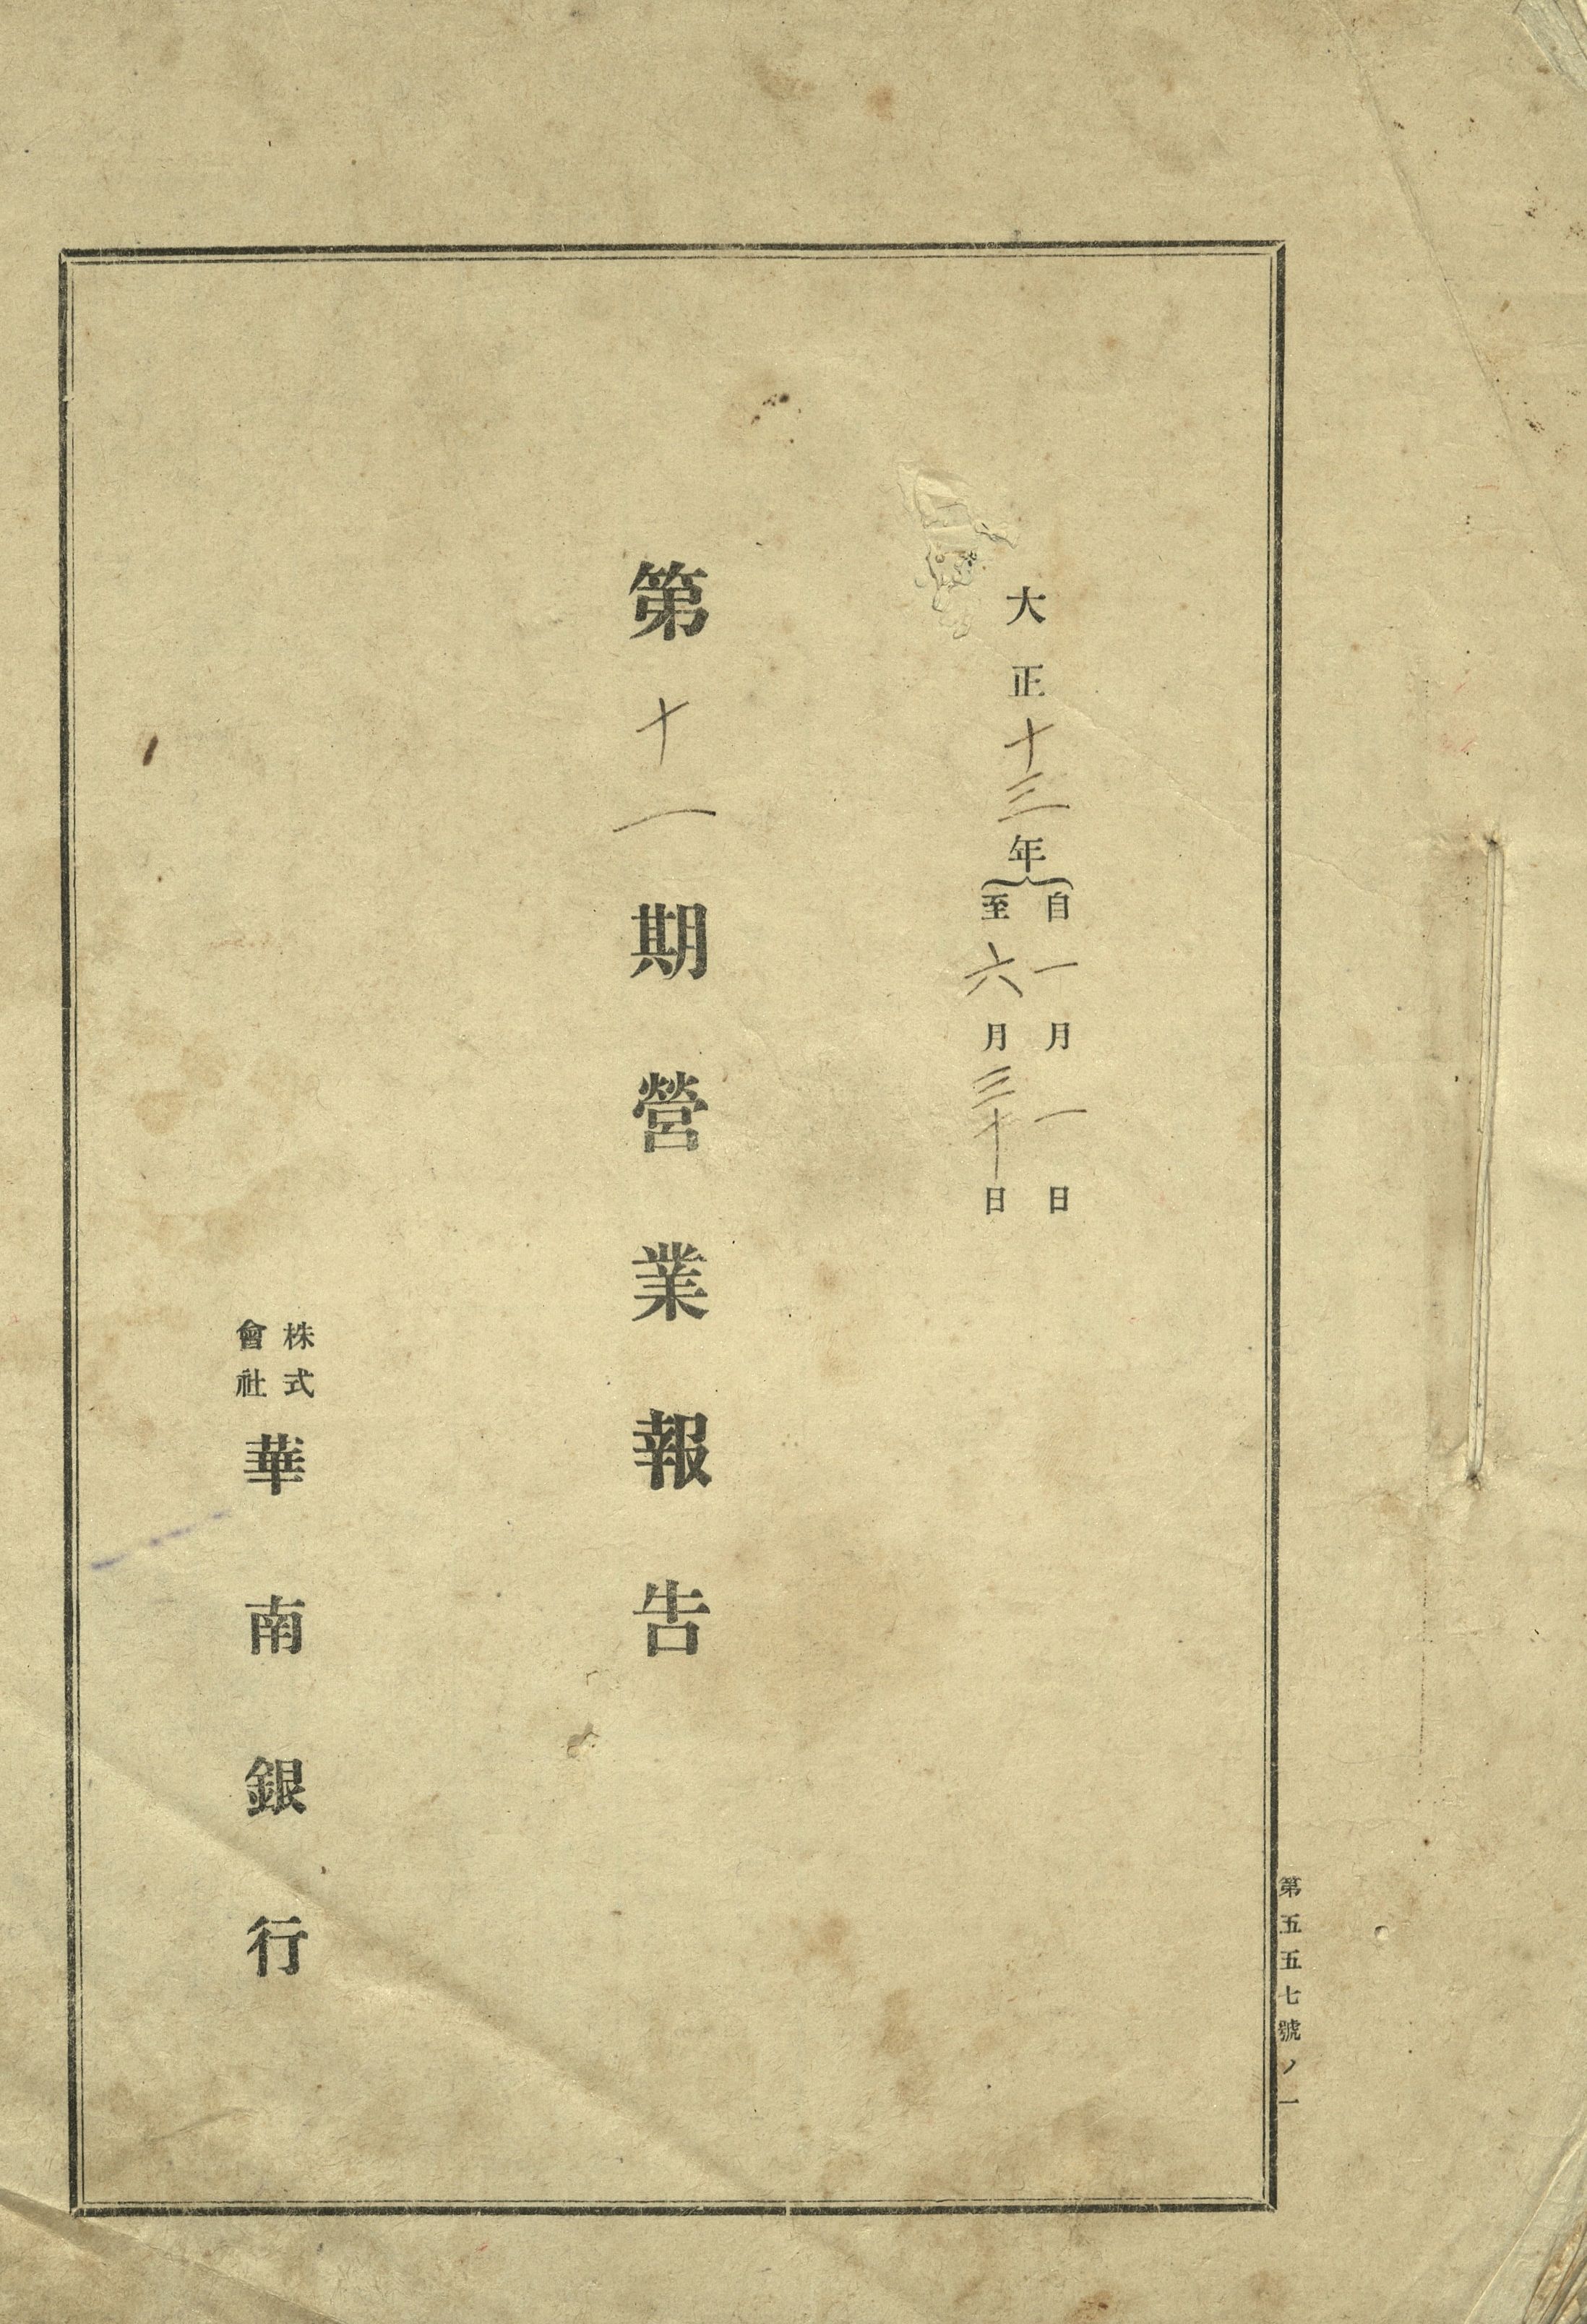 第五五七號ノ一
大正十三年
自一月一日
至六月三十日
第十一期營業報告
株式
會社
華南銀行